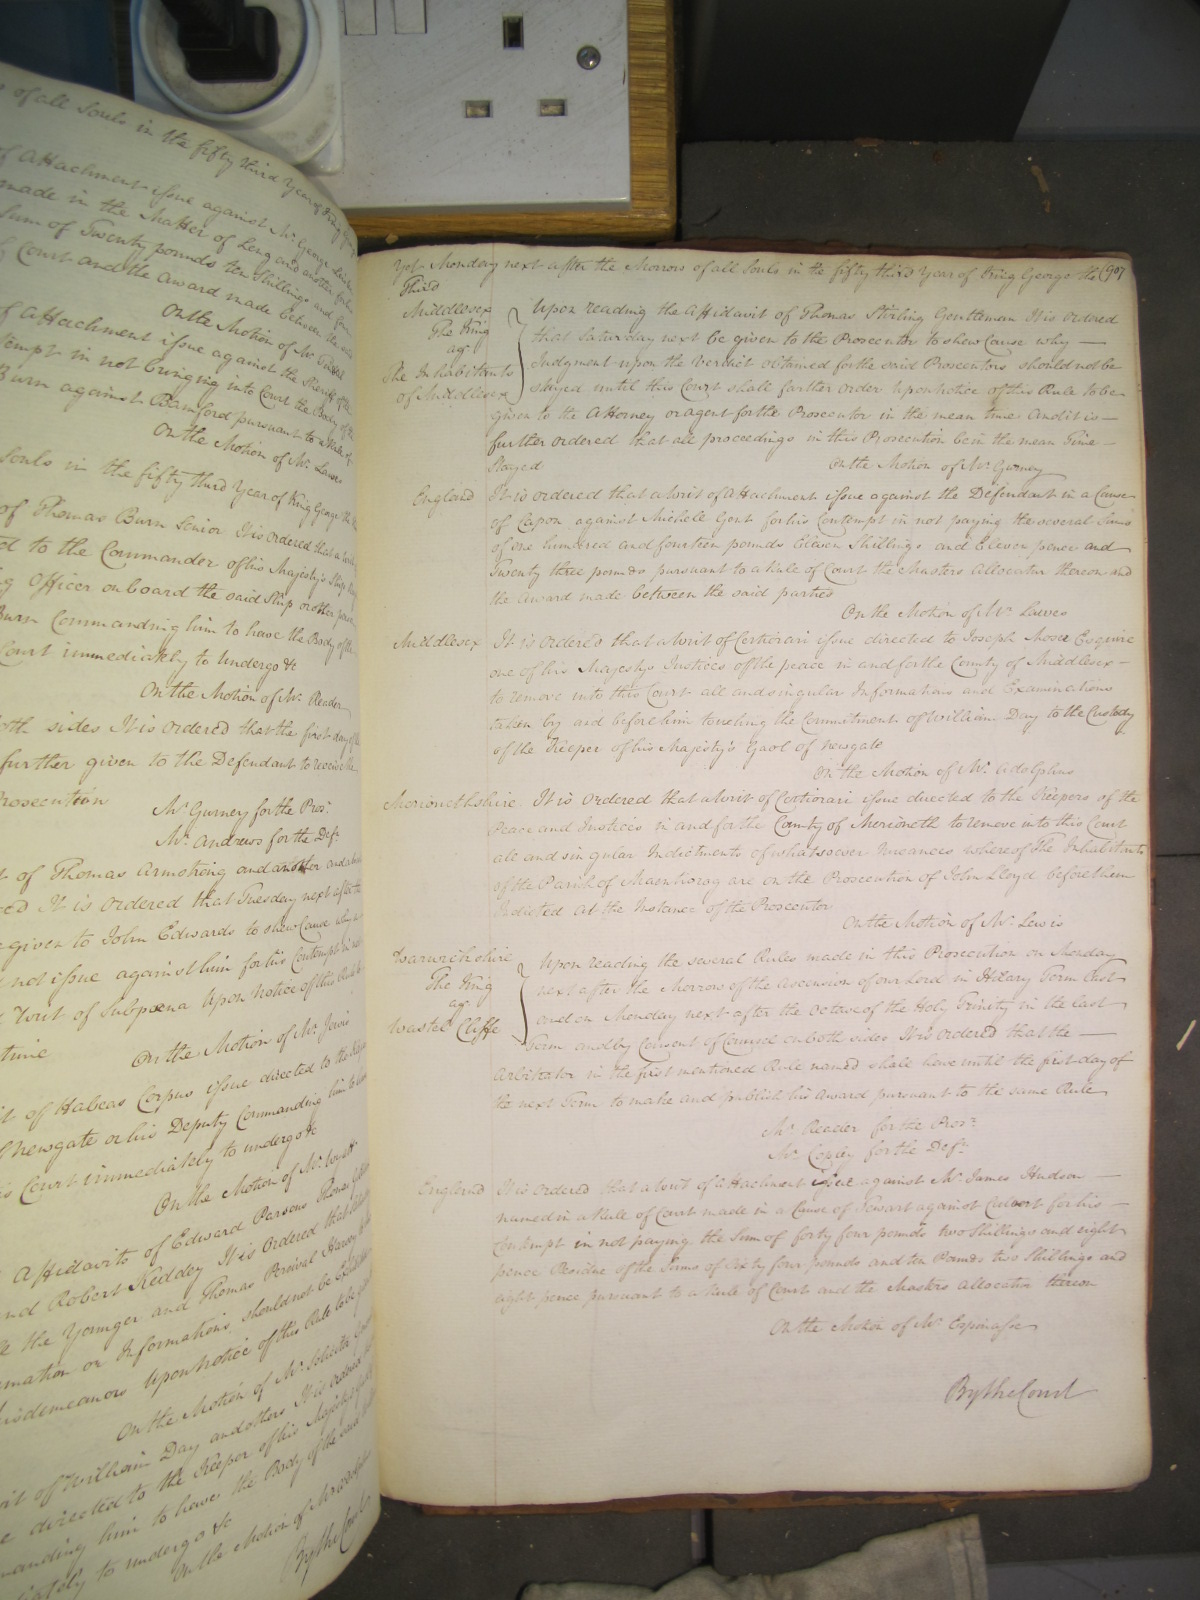 of all Souls in the fifty third Year of King
of Attachment issue against Mr. George
made in the Matter of Leng and another
Sum of Twenty pounds ten Shillings and
Court and the award made between the said
On the Motion of Mr.
of Attachment issue against the Sheriff of the
tempt in not bringing into Court the Body of the
Burn against Bamford pursuant to a Rule of
On the Motion of Mr. Lawes
Souls in the fifty third Year of King George the
of Thomas Burn Senior It is ordered that a
ed to the Commander of his Majesty's Ship
g Officer on board the said Ship or other
Burn Commanding him to have the Body of the
Court immediately to undergo &c
On the Motion of Mr. Reader
oth sides It is ordered that the first day of
further given to the Defendant to
Prosecution
Mr. Gurney for the Pros:r
Mr. Andrews for the Def:t
t of Thomas Armstrong and another and
ed It is ordered that Tuesday next after the
e given to John Edwards to shew Cause why a
not issue against him for his Contempt in not
Writ of Subpoena Upon Notice of this Rule
time
On the Motion of Mr. Jervis
it of Habeas Corpus issue directed to the
Newgate or his Deputy Commanding him to
s Court immediately to undergo &c
On the Motion of Mr. Wyatt
Affidavits of Edward Parsons Thomas
and Robert Keddey It is Ordered that
the Younger and Thomas Percival
rmation or Informations should not be Exhibited
isdemeanors Upon Notice of this Rule to be
On the Motion of Mr. Solicitor
rit of William Day and others It is ordered
e directed to the Keeper of his Majesty's
manding him to have the Body of the said
iately to undergo &c
On the Motion of Mr. Adolphus
By the Court
Yet Monday next after the Morrow of all Souls in the fifty third Year of King George the (907
Third
Middlesex
The King
agt.
The Inhabitants
of Middlesex
Upon reading the Affidavit of Thomas Stirling Gentleman It is ordered
that Saturday next be given to the Prosecutor to shew Cause why
Judgment upon the Verdict obtained for the said Prosecutors should not be
stayed until this Court shall further order Upon Notice of this Rule to be
given to the Attorney or agent for the Prosecutor in the mean time And it is
further ordered that all proceedings in this Prosecution be in the mean Time
Stayed On the Motion of Mr. Gurney
England It is ordered that a Writ of Attachment issue against the Defendant in a Cause
of Capon against Michell Gent for his Contempt in not paying the several Sums
of one hundred and fourteen pounds Eleven Shillings and Eleven pence and
Twenty three pounds pursuant to a Rule of Court the Masters Allocatur thereon and
the Award made between the said parties
On the Motion of Mr. Lawes
Middlesex It is Ordered that a Writ of Certiorari issue directed to Joseph Moser Esquire
one of his Majestys Justices of the peace in and for the County of Middlesex
to remove into this Court all and singular Informations and Examinations
taken by and before him touching the Commitment of William Day to the Custody
of the Keeper of his Majesty's Gaol of Newgate
On the Motion of Mr. Adolphus
Merionethshire It is Ordered that a Writ of Certiorari issue directed to the Keepers of the
Peace and Justices in and for the County of Merioneth to remove into this Court
all and singular Indictments of whatsoever Nuisances whereof The Inhabitants
of the Parish of Maentwrog are on the Prosecution of John Lloyd before them
Indicted At the Instance of the Prosecutor
On the Motion of Mr. Lewis
Warwickshire
The King
agt.
Wastel Cliffe
Upon reading the several Rules made in this Prosecution on Monday
next after the Morrow of the Ascension of our Lord in Hilary Term Last
and on Monday next after the Octave of the Holy Trinity in the last
Term and by Consent of Counsel on both sides It is Ordered that the
Arbitrator in the first mentioned Rule named shall have until the first day of
the next Term to make and publish his Award pursuant to the same Rule
Mr. Reader for the Pros:r
Mr. Copley for the Def:t
England It is Ordered that a Writ of Attachment issue against Mr. James Hudson
named in a Rule of Court made in a Cause of Stewart against Calvert for his
Contempt in not paying the Sum of forty four pounds two Shillings and eight
pence Residue of the Sums of Sixty four pounds and ten Pounds two Shillings and
eight pence pursuant to a Rule of Court and the Masters Allocatur thereon
On the Motion of Mr. Espinasse
By the Court